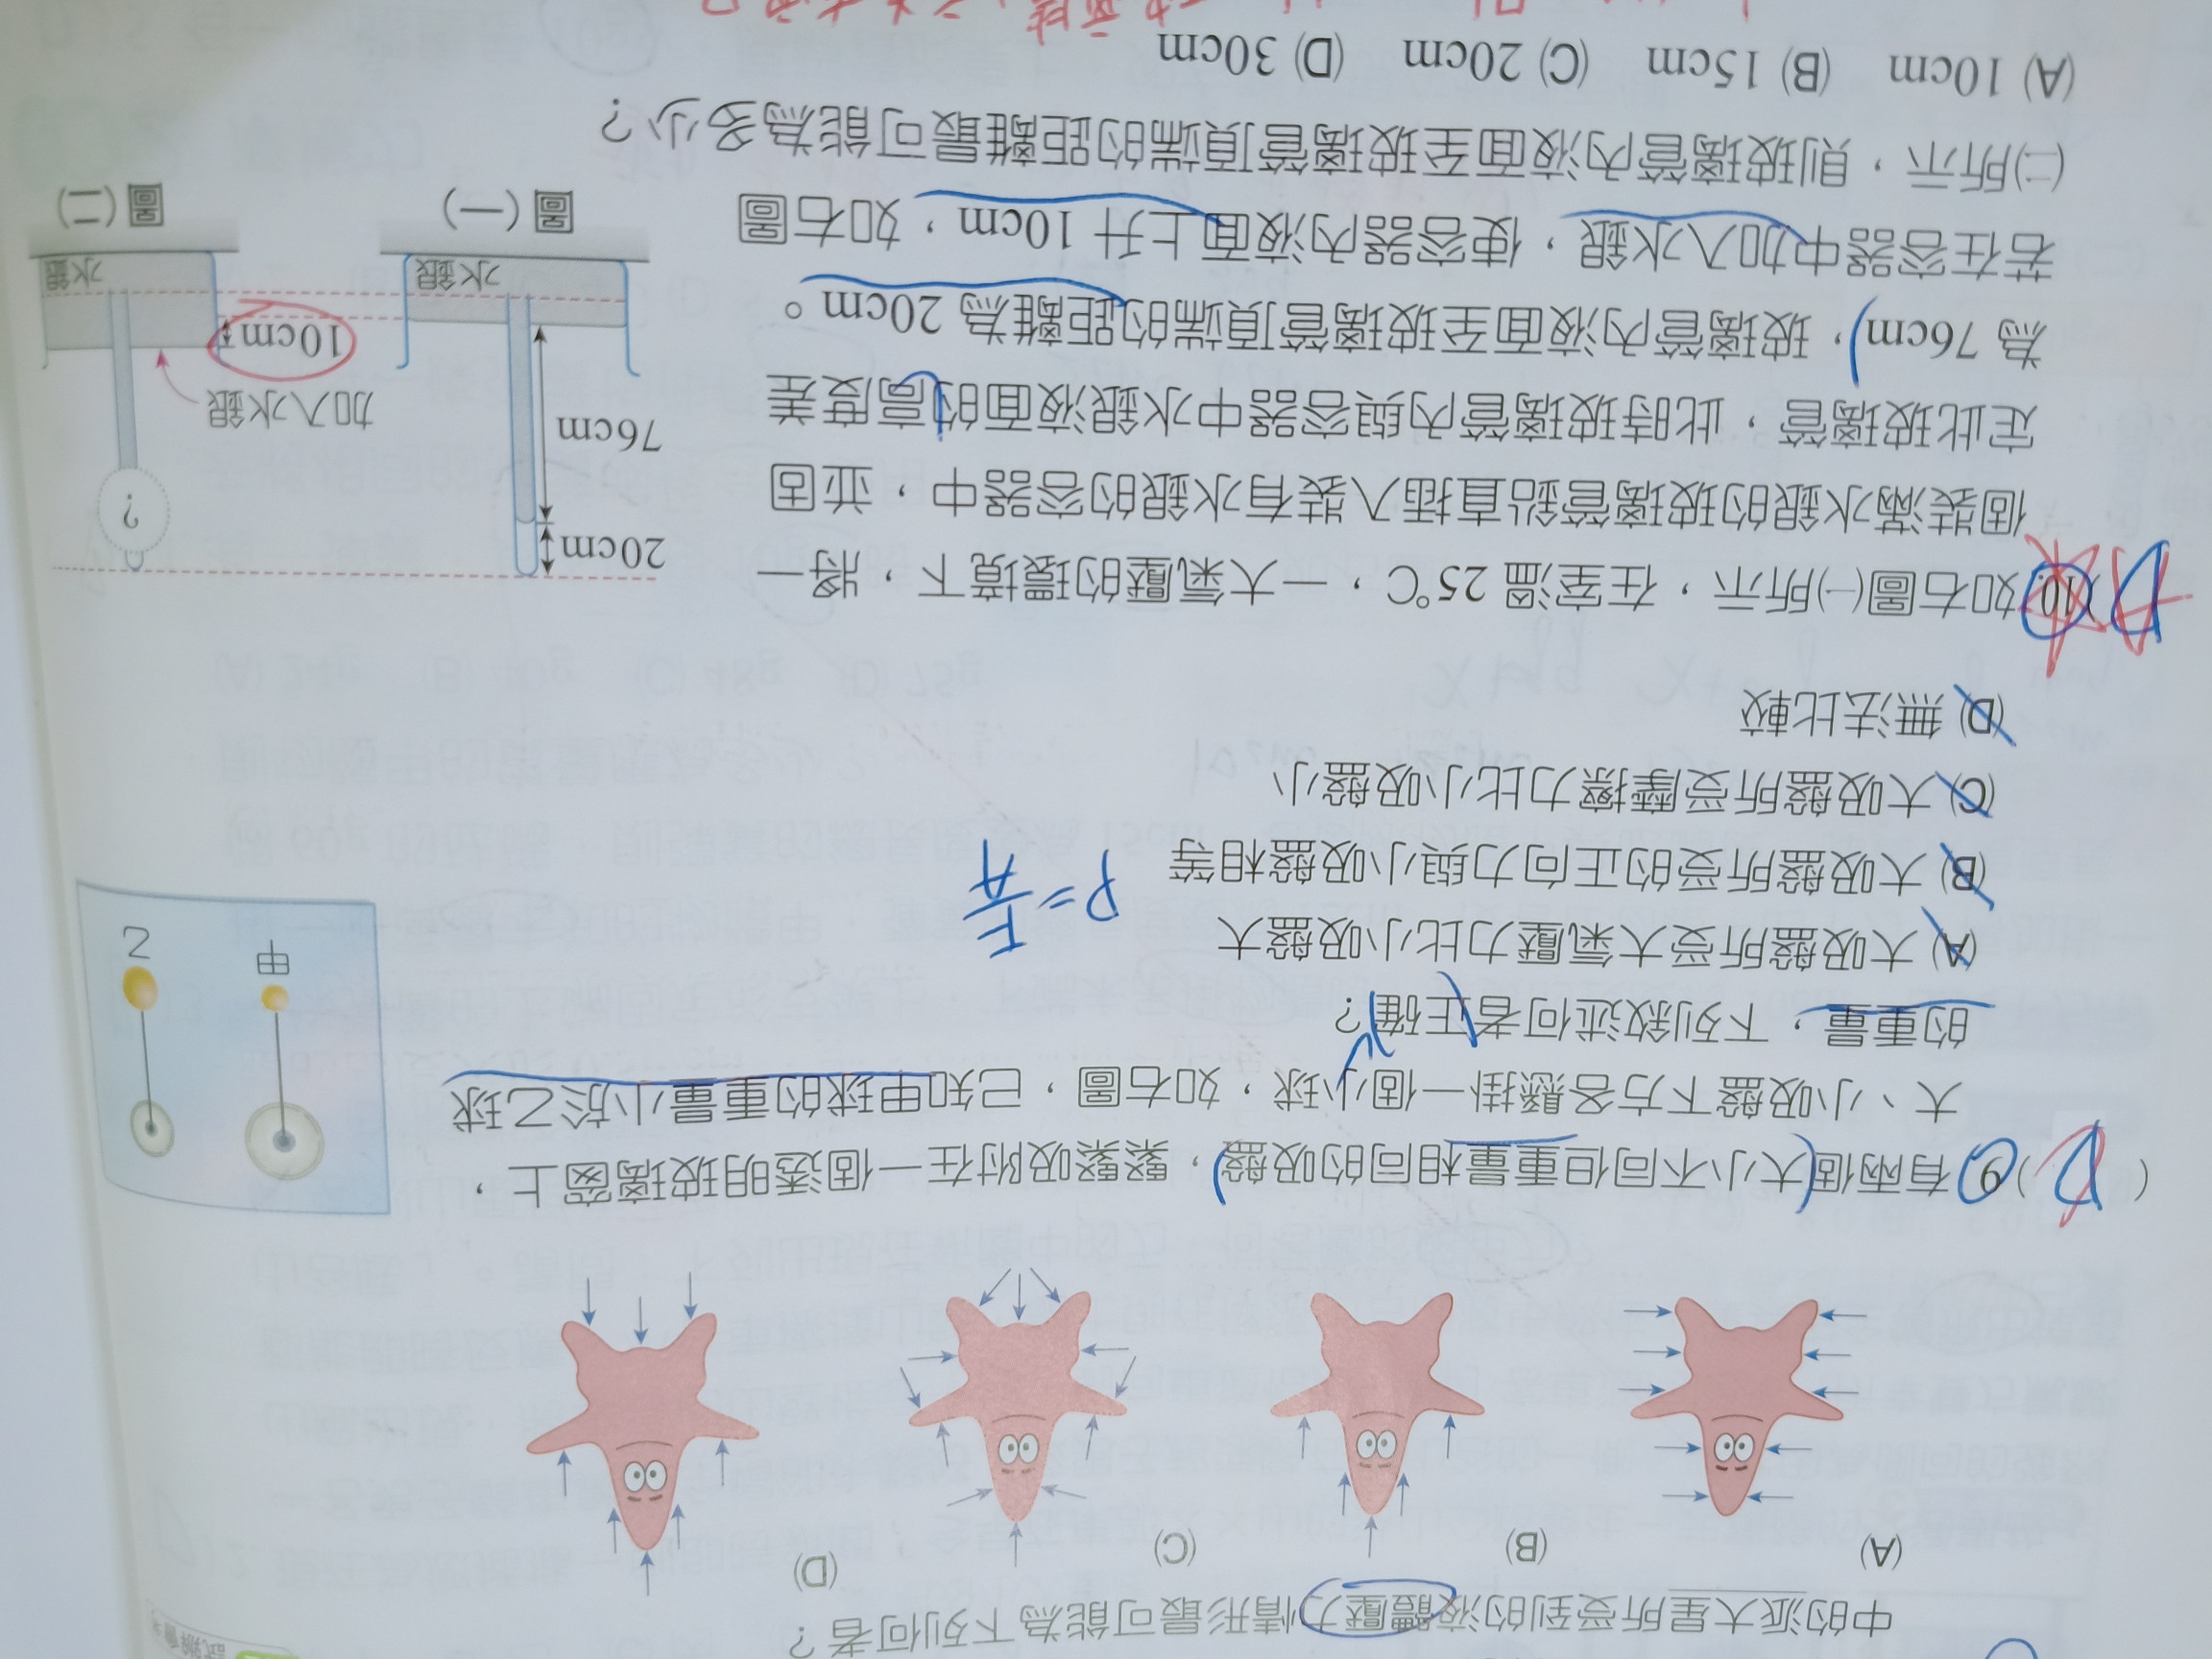 中的派大星所受到的液體壓力情形最可能為下列何者？
(A)
(B)
(C)
(D)
( D )9.有兩個大小不同但重量相同的吸盤，緊緊吸附在一個透明玻璃窗上，
大、小吸盤下方各懸掛一個小球，如右圖，已知甲球的重量小於乙球
的重量，下列敘述何者正確？
(A) 大吸盤所受大氣壓力比小吸盤大
(B) 大吸盤所受的正向力與小吸盤相等
(C) 大吸盤所受摩擦力比小吸盤小
(D) 無法比較
P=F/A
甲
乙
D )10.如右圖(一)所示，在室溫 25℃，一大氣壓的環境下，將一
個裝滿水銀的玻璃管鉛直插入裝有水銀的容器中，並固
定此玻璃管，此時玻璃管內與容器中水銀液面的高度差
為 76cm，玻璃管內液面至玻璃管頂端的距離為 20cm。
若在容器中加入水銀，使容器內液面上升 10cm，如右圖
(二)所示，則玻璃管內液面至玻璃管頂端的距離最可能為多少？
(A) 10cm (B) 15cm (C) 20cm (D) 30cm
20cm
76cm
水銀
圖(一)
?
加入水銀
10cm
水銀
圖(二)